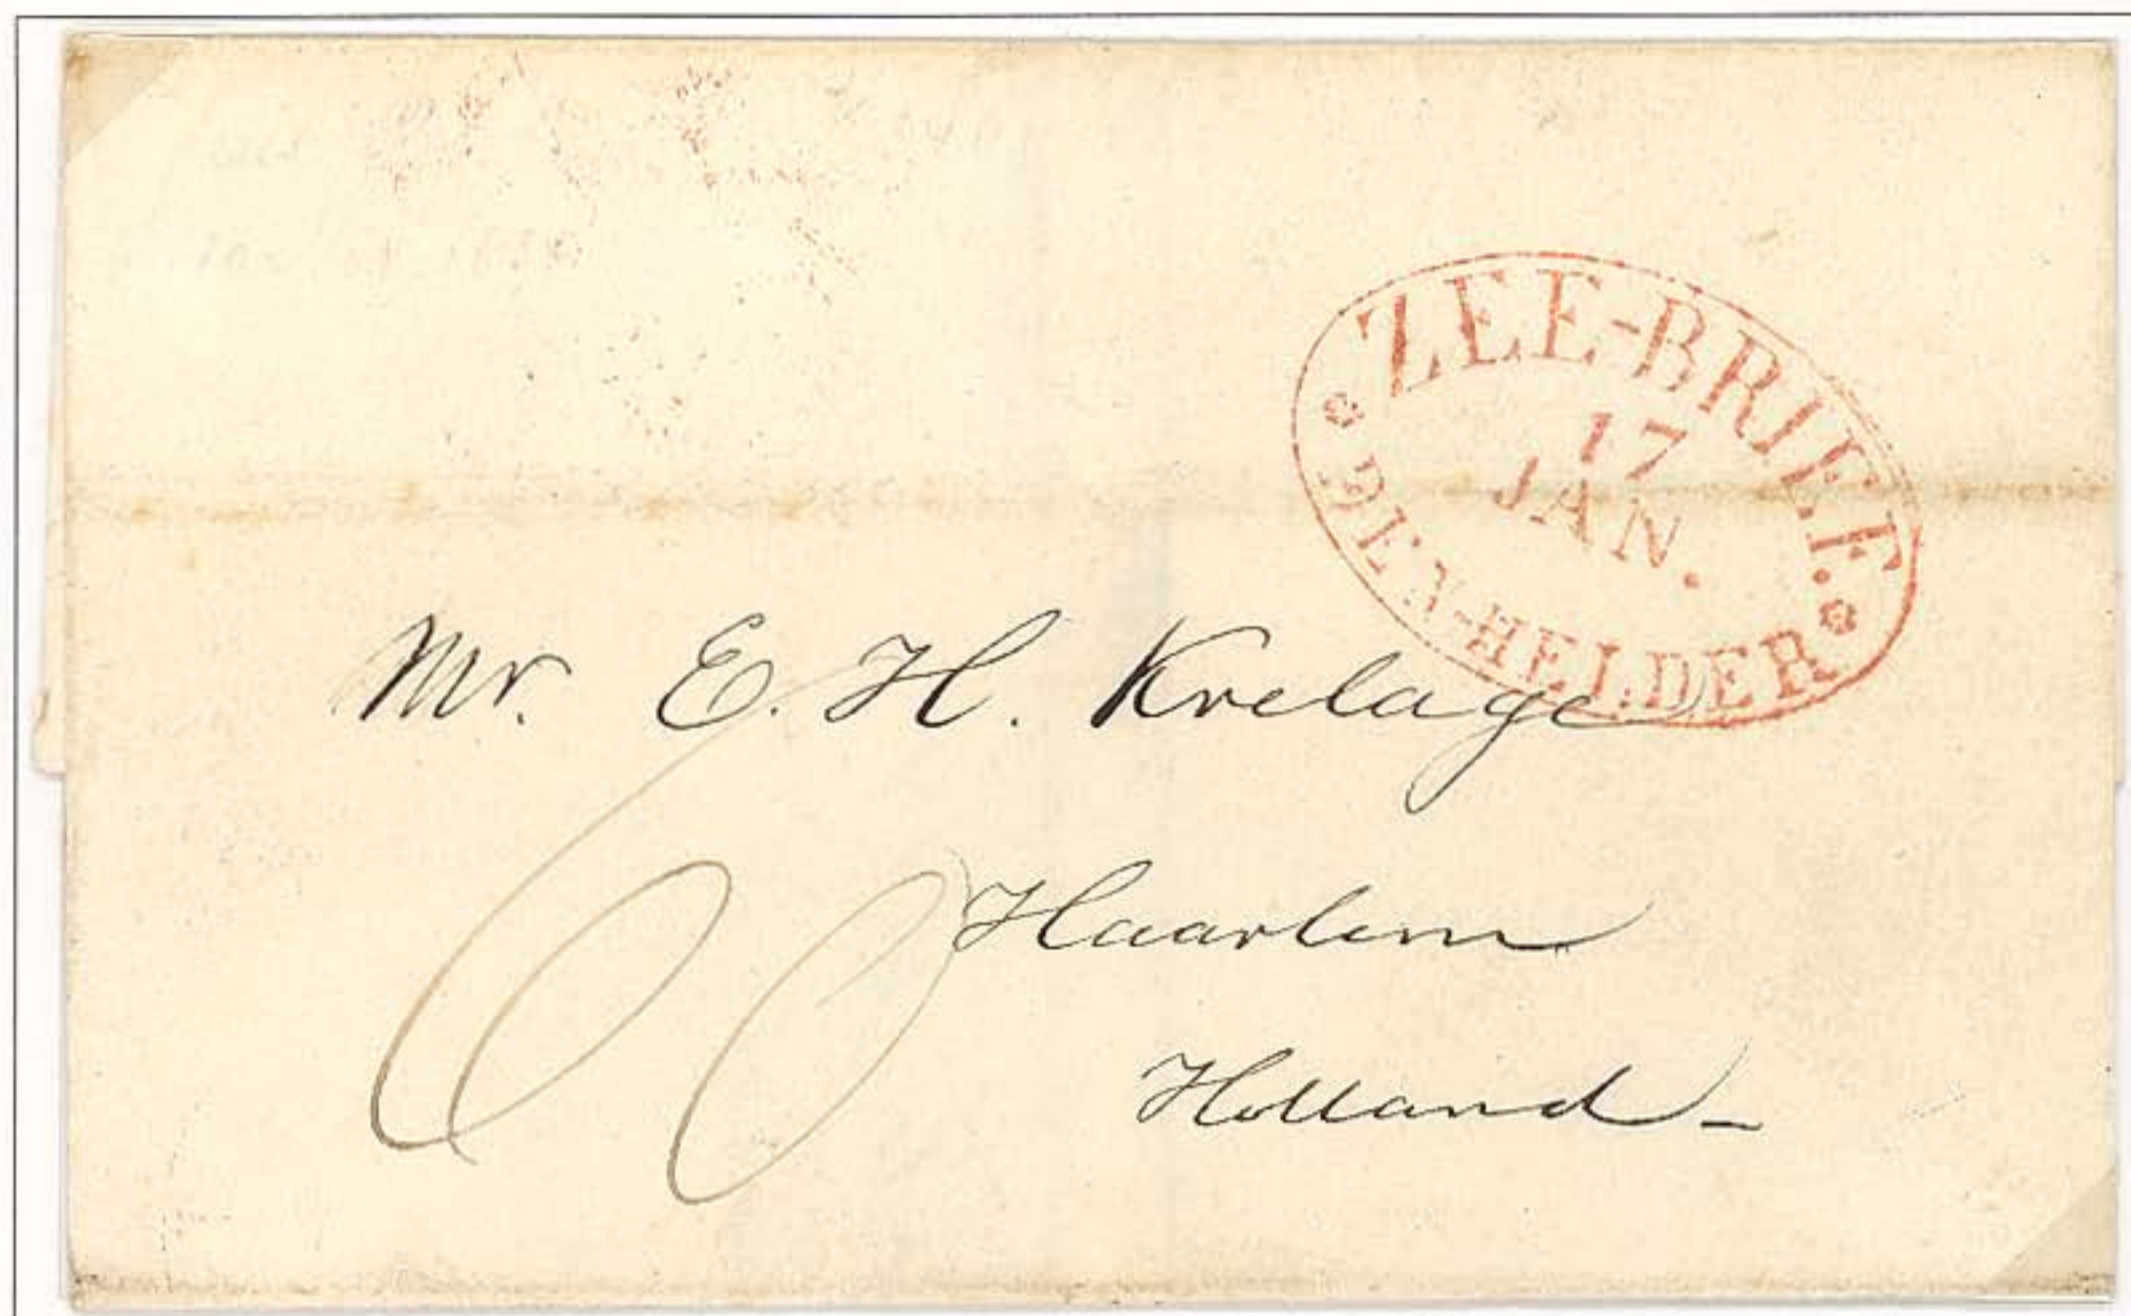 ZEE-BRIEF.
17
JAN.
DEN-HELDER
Mr. E. H. Krelage
60
Haarlem
Holland